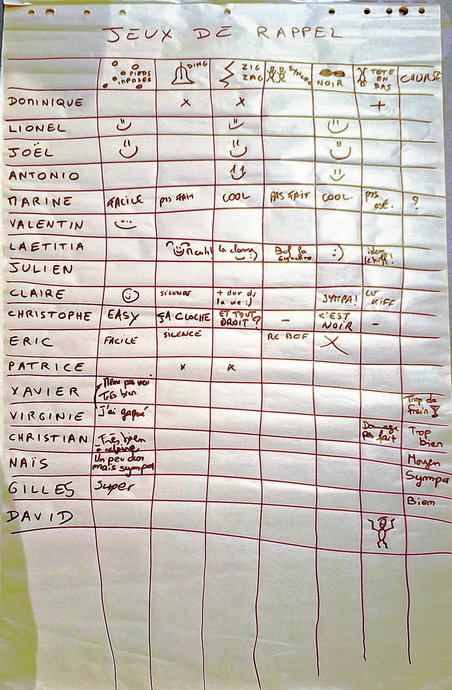 JEUX DE RAPPEL
PIEDS IMPOSES DING ZIG ZAG SYNCRO NOIR TETE EN BAS COURSE
DOMINIQUE x x +
LIONEL
JOËL
ANTONIO
MARINE FACILE pas fait COOL PAS FAIT COOL. pas osé. ?
VALENTIN
LAETITIA la classe :) Bof la synchro :) idem le kiff!
JULIEN
CLAIRE silence + dur ds la vie :) SYMPA! LE KIFF
CHRISTOPHE EASY ÇA CLOCHE ET TOUT DROIT? – C'EST NOIR –
ERIC FACILE SILENCE RE BOF X
PATRICE x x
XAVIER Même pas Très bien Trop de frein
VIRGINIE "j'ai gagné
CHRISTIAN Très bien Dommage pas fait Trop bien
NAÏS Un peu dur mais sympa Moyen
GILLES Super Sympa
Bien
DAVID